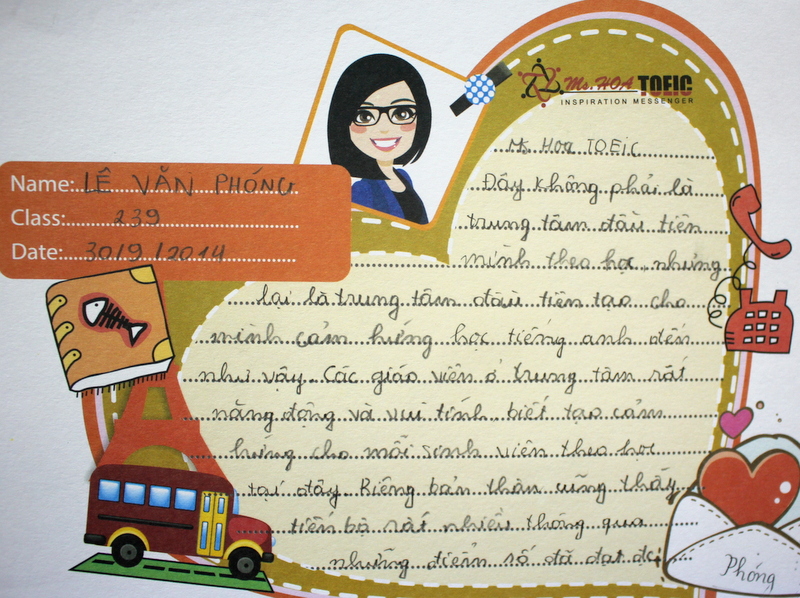 Ms. HOA TOEIC
INSPIRATION MESSENGER
Name: LÊ VĂN PHÓNG
Class: 239
Date: 30/9/2014
Ms Hoa TOEIC
Đây không phải là
trung tâm đầu tiên
mình theo học, nhưng
lại là trung tâm đầu tiên tạo cho
mình cảm hứng học tiếng anh đến
như vậy. Các giáo viên ở trung tâm rất
năng động và vui tính, biết tạo cảm
hứng cho mỗi sinh viên theo học
tại đây. Riêng bản thân cũng thấy
tiến bộ rất nhiều thông qua
những điểm số đã đạt đc
Phóng